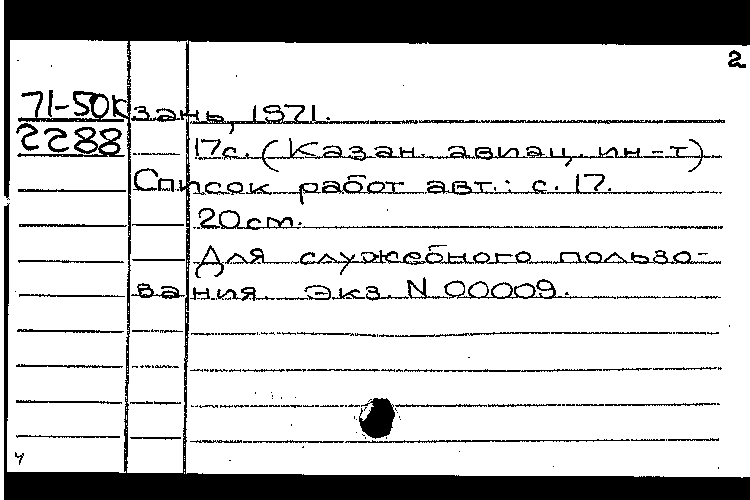 2
71-50к зань, 1971.
2288 17с. (Казан. авиац. ин-т)
Список работ авт.: с. 17.
20см.
Для служебного пользо-
вания. Экз. N 00009.
ч